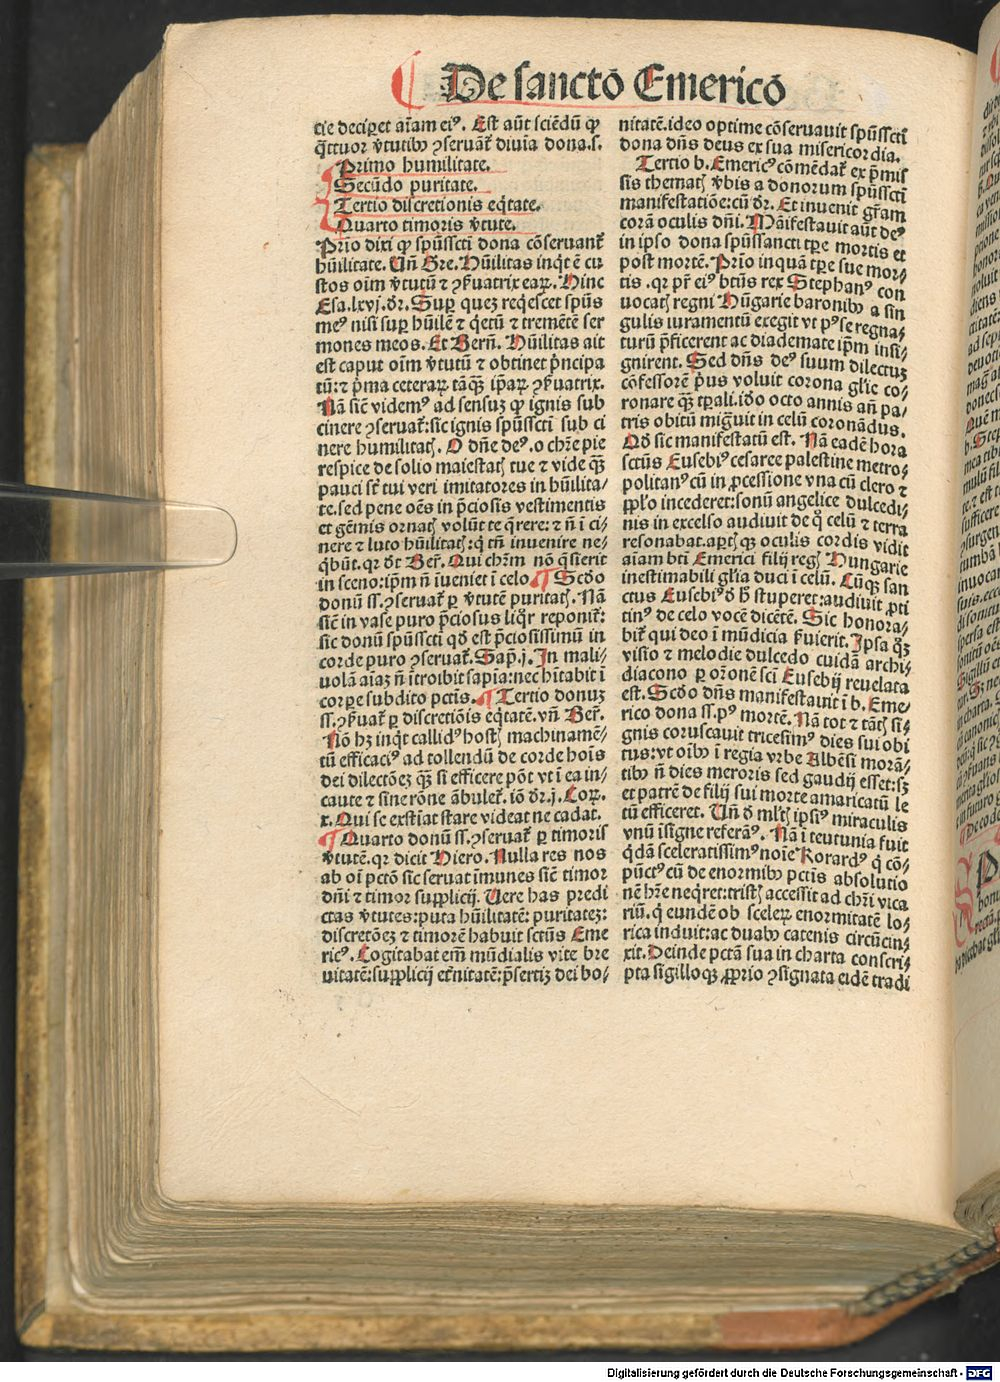 De sanctō Emericō
tie deciꝑet aīam eiꝰ. Est aūt sciēdū ꝙ
q̇ttuor v̓tutibꝰ ꝯseruāt diuīa dona.s.
Primo humilitate.
Secūdo puritate.
Tertio discretionis eq̇tate.
Quarto timoris v̓tute.
Prīo dixi ꝙ spūssc̄ti dona cōseruant᷑
hūilitate. Un̄ Gre. Hūilitas inq̇t ē cu
stos oīm v̓tutū ⁊ ꝯẜuatrix eaꝝ. Hinc
Esa.lxvj.dr̄. Suꝑ quez req̇escet spūs
meꝰ nisi suꝑ hūilē ⁊ q̇etū ⁊ tremētē ser
mones meos. Et Bern̄. Hūilitas ait
est caput oīm v̓tutū ⁊ obtinet p̄ncipa
tū: ⁊ p̄ma ceteraꝝ tāq̄ꝫ ip̄aꝝ ꝯẜuatrix.
Nā sic̄ videmꝰ ad sensuz ꝙ ignis sub
cinere ꝯseruat᷑: sic ignis spūssc̄ti sub ci
nere humilitatꝭ. O dn̄e deꝰ. o chr̄e pie
respice de solio maiestatꝭ tue ⁊ vide q̄ꝫ
pauci sūt tui veri imitatores in hūilita/
te. sed pene oēs in p̄ciosis vestimentis
et gēmis ornatꝭ volūt te q̄rere: ⁊ n̄ ī ci/
nere ⁊ luto hūilitatꝭ: q̇ tn̄ inuenire ne/
q̇būt. qꝛ dt̄ Ber̄. Qui chr̄m nō q̄sierit
in sceno: ip̄m n̄ īueniet ī celo ¶ Scdo
donū ss. ꝯseruat᷑ ꝑ v̓tutē puritatꝭ. Nā
sic̄ in vase puro p̄ciosus liq̊r reponit᷑:
sic donū spūssc̄ti qd̄ est p̄ciosissimū in
corde puro ꝯseruat᷑. Sap̄.j. In mali/
uolā aīaz n̄ ītroibit sapīa: nec hītabit ī
corꝑe subdito pctīs. ¶ Tertio donuz
ss. ꝯẜuat᷑ ꝑ discretiōis eq̇tatē. vn̄ Ber̄.
Nō hꝫ inq̇t callidꝰ hostꝭ machinamē/
tū efficaciꝰ ad tollendū de corde hoīs
dei dilectōeꝫ q̄ꝫ si efficere pōt vt ī ea in/
caute ⁊ sine rōne ābulet᷑. iō dr̄.j. Coꝝ.
x. Qui se exstīat stare videat ne cadat.
¶ Quarto donū ss. ꝯseruat᷑ ꝑ timoris
v̓tutē. qꝛ dicit Hiero. Nulla res nos
ab oī pctō sic seruat īmunes sic̄ timor
dn̄i ⁊ timor supplicij. Uere has predi
ctas v̓tutes: puta hūilitatē: puritateꝫ:
discretōeꝫ ⁊ timorē habuit sctūs Eme
ricꝰ. Cogitabat em̄ mūdialis vite bre
uitatē: supplicij et̓nitatē: p̄sertiꝫ dei bo/
nitatē. ideo optime cōseruauit spūssc̄ti
dona dn̄s deus ex sua misericordia.
Tertio b. Emericꝰ cōmēdat᷑ ex p̄mis
sis thematꝭ v̓bis a donorum spūssc̄ti
manifestatiōe: cū dr̄. Et inuenit gr̄am
corā oculis dn̄i. Māifestauit aūt deꝰ
in ipso dona spūssancti tꝑe mortis et
post mortē. Prīo inquā tꝑe sue mor/
tis. qꝛ pr̄ eiꝰ btūs rex Stephanꝰ con
uocatꝭ regni Hūgarie baronibꝰ a sin
gulis iuramentū exegit vt pꝰ se regna/
turū p̄ficerent ac diademate ip̄m insi/
gnirent. Sed dn̄s deꝰ suum dilectuꝫ
cōfessorē p̓us voluit corona gl̄ie co/
ronare q̄ꝫ tꝑali. iō octo annis an̄ pa/
tris obitū mig̓uit in celū coronādus.
Qd̄ sic manifestatū est. Nā eadē hora
sctūs Eusebiꝰ cesaree palestine metro/
politanꝰ cū in ꝓcessione vna cū clero ⁊
pp̄lo incederet: sonū angelice dulcedi/
nis in excelso audiuit de q̊ celū ⁊ terra
resonabat. aꝑtꝭqꝫ oculis cordis vidit
aīam bti Emerici filij regꝭ Hungarie
inestimabili gl̄ia duci ī celū. Cūqꝫ san
ctus Eusebiꝰ d̓ h̄ stuperet: audiuit ꝓti
tinꝰ de celo vocē dicētē. Sic honora/
bit᷑ qui deo ī mūdicia ẜuierit. Ipsa q̊ꝫ
visio ⁊ melodie dulcedo cuidā archi/
diacono ꝑ orōnē scī Eusebij reuelata
est. Scdo dn̄s manifestauit ī b. Eme/
rico dona ss. pꝰ mortē. Nā tot ⁊ tātꝭ si/
gnis coruscauit tricesimꝰ dies sui obi
tus: vt oībꝰ ī regia vrbe Albēsi morā/
tibꝰ n̄ dies meroris sed gaudij esset: sꝫ
et patrē de filij sui morte amaricatū le
tū efficeret. Un̄ d̓ ml̓tꝭ ipsiꝰ miraculis
vnū īsigne referāꝰ. Nā ī teutunia fuit
q̇dā sceleratissimꝰ noīe Korardꝰ q̇ cō/
pūctꝰ cū de enormibꝰ pctīs absolutio
nē hr̄e neq̇ret: tristꝭ accessit ad chr̄i vica
riū. q̇ eundē ob sceleꝝ enormitatē lo/
rica induit: ac duabꝰ catenis circūcin/
xit. Deinde pctā sua in charta conscri/
pta sigilloqꝫ ꝓprio ꝯsignata eidē tradi
Digitalisierung gefördert durch die Deutsche Forschungsgemeinschaft - DFG